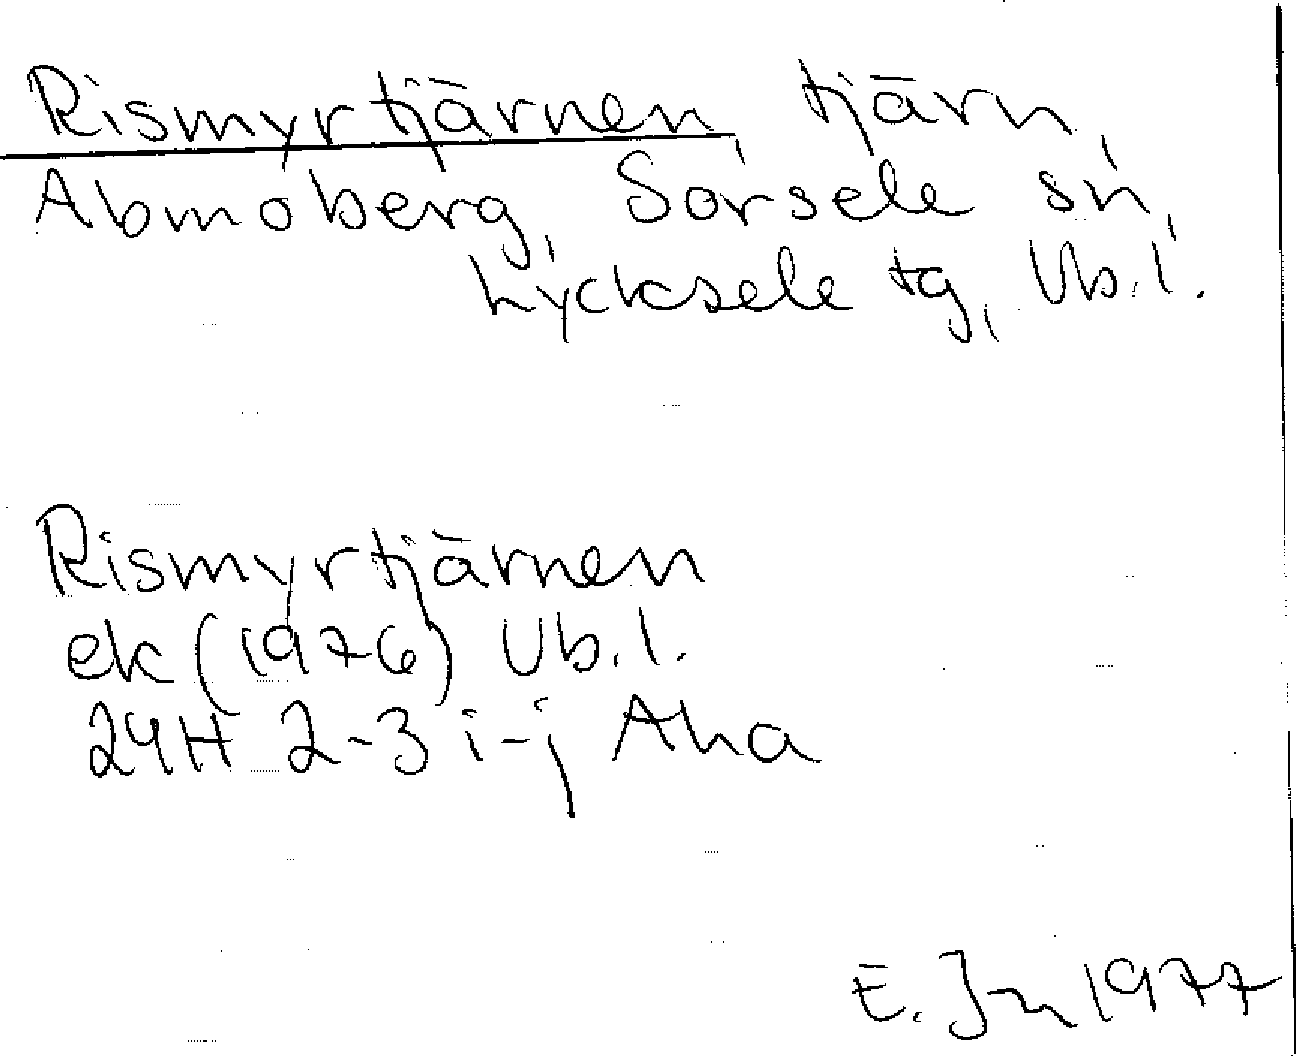 Rismyrtjärnen, tjärn,
Abmoberg, Sorsele sn,
Lycksele tg, Vb.l.
Rismyrtjärnen
ek (1976) Vb.l.
24H 2-3 i-j Aha
E. Jn 1977